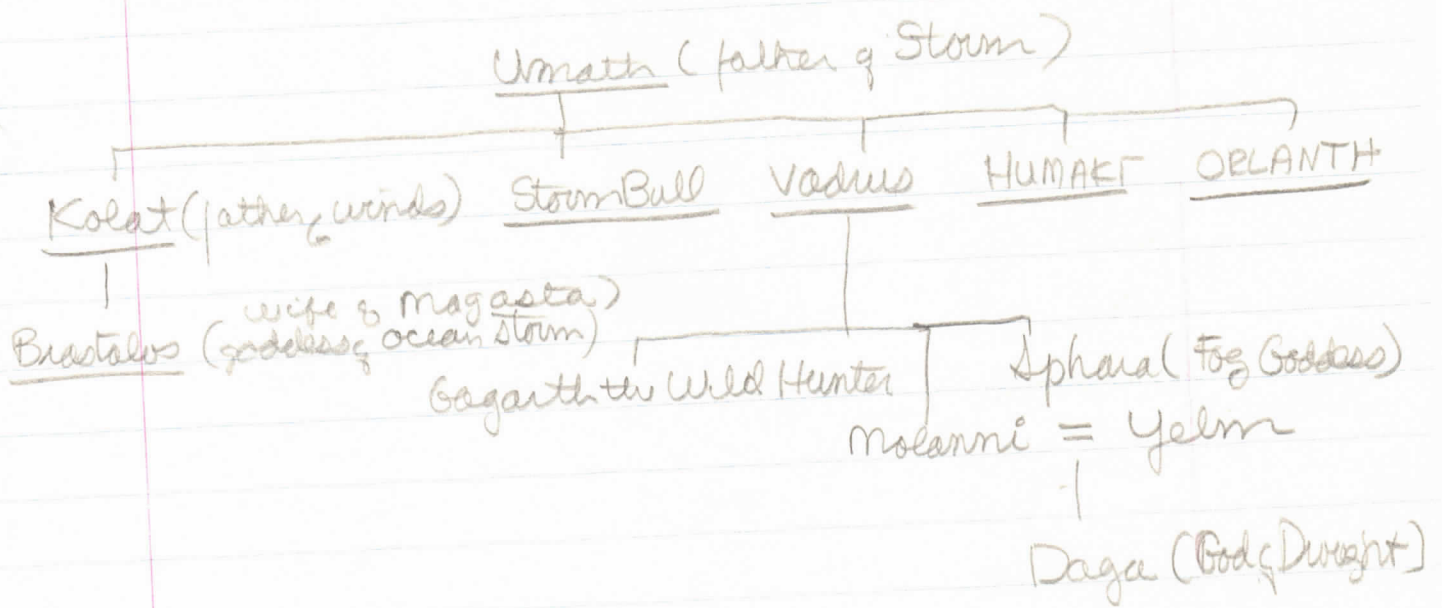 Umath (father of Storm)
Kolat (father of winds) StormBull Vadrus HUMAKT ORLANTH
wife of Magasta)
Brastalos (goddess of ocean storm)
Gagarth the Wild Hunter
Aphara (Fog Goddess)
Molanni = Yelm
Daga (God of Drought)